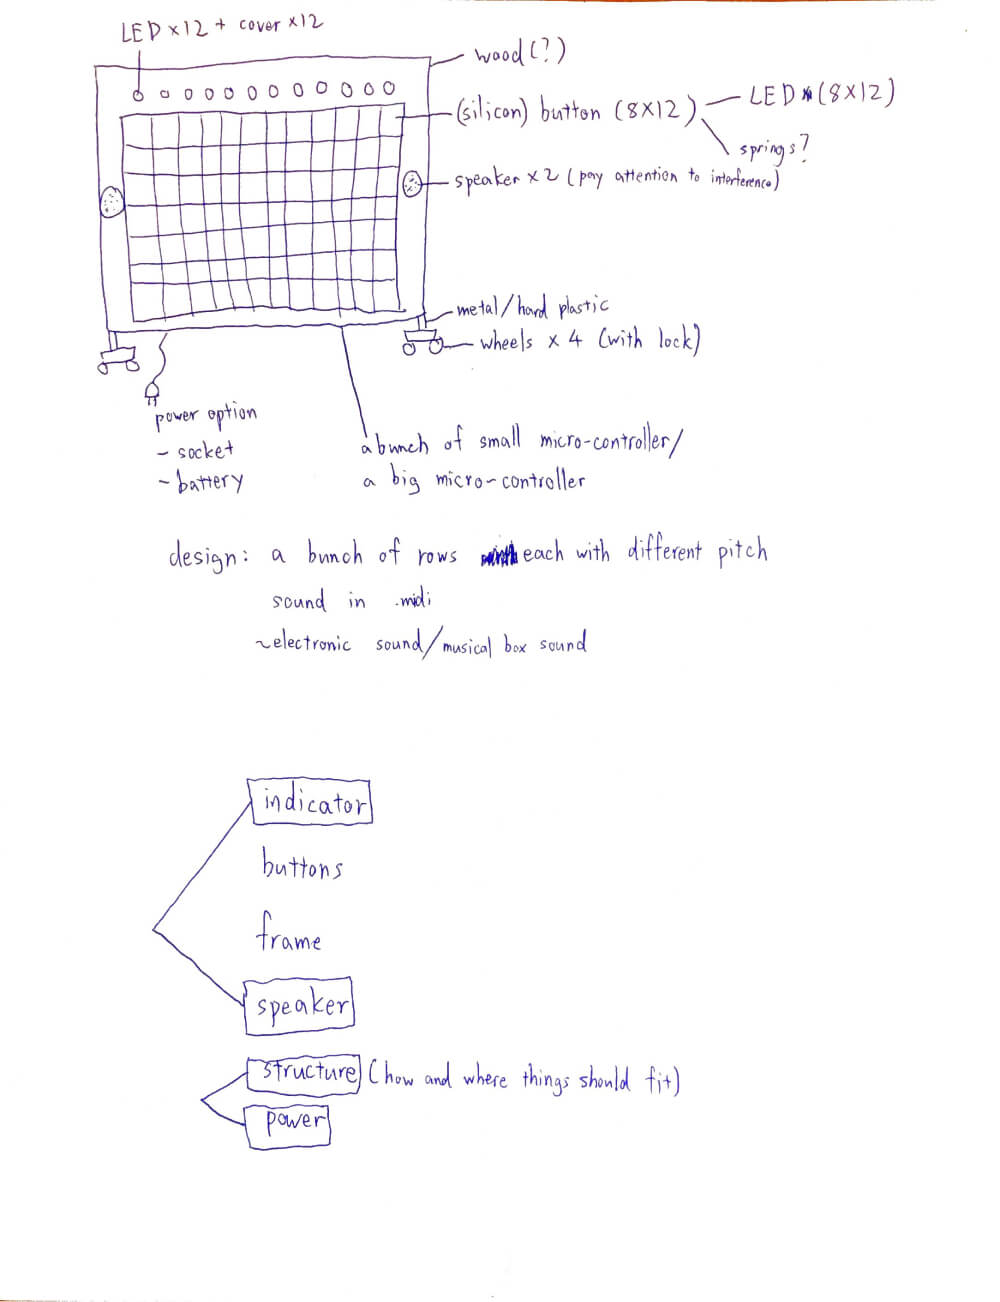 LED x12 + cover x12
wood(?)
(silicon) button (8X12)
LED (8X12)
springs?
speaker x 2 (pay attention to interference)
metal/hard plastic
wheels x 4 (with lock)
power option
- socket
- battery
a bunch of small micro-controller/
a big micro-controller
design: a bunch of rows each with different pitch
sound in .midi
~electronic sound/musical box sound
indicator
buttons
frame
speaker
structure (how and where things should fit)
power